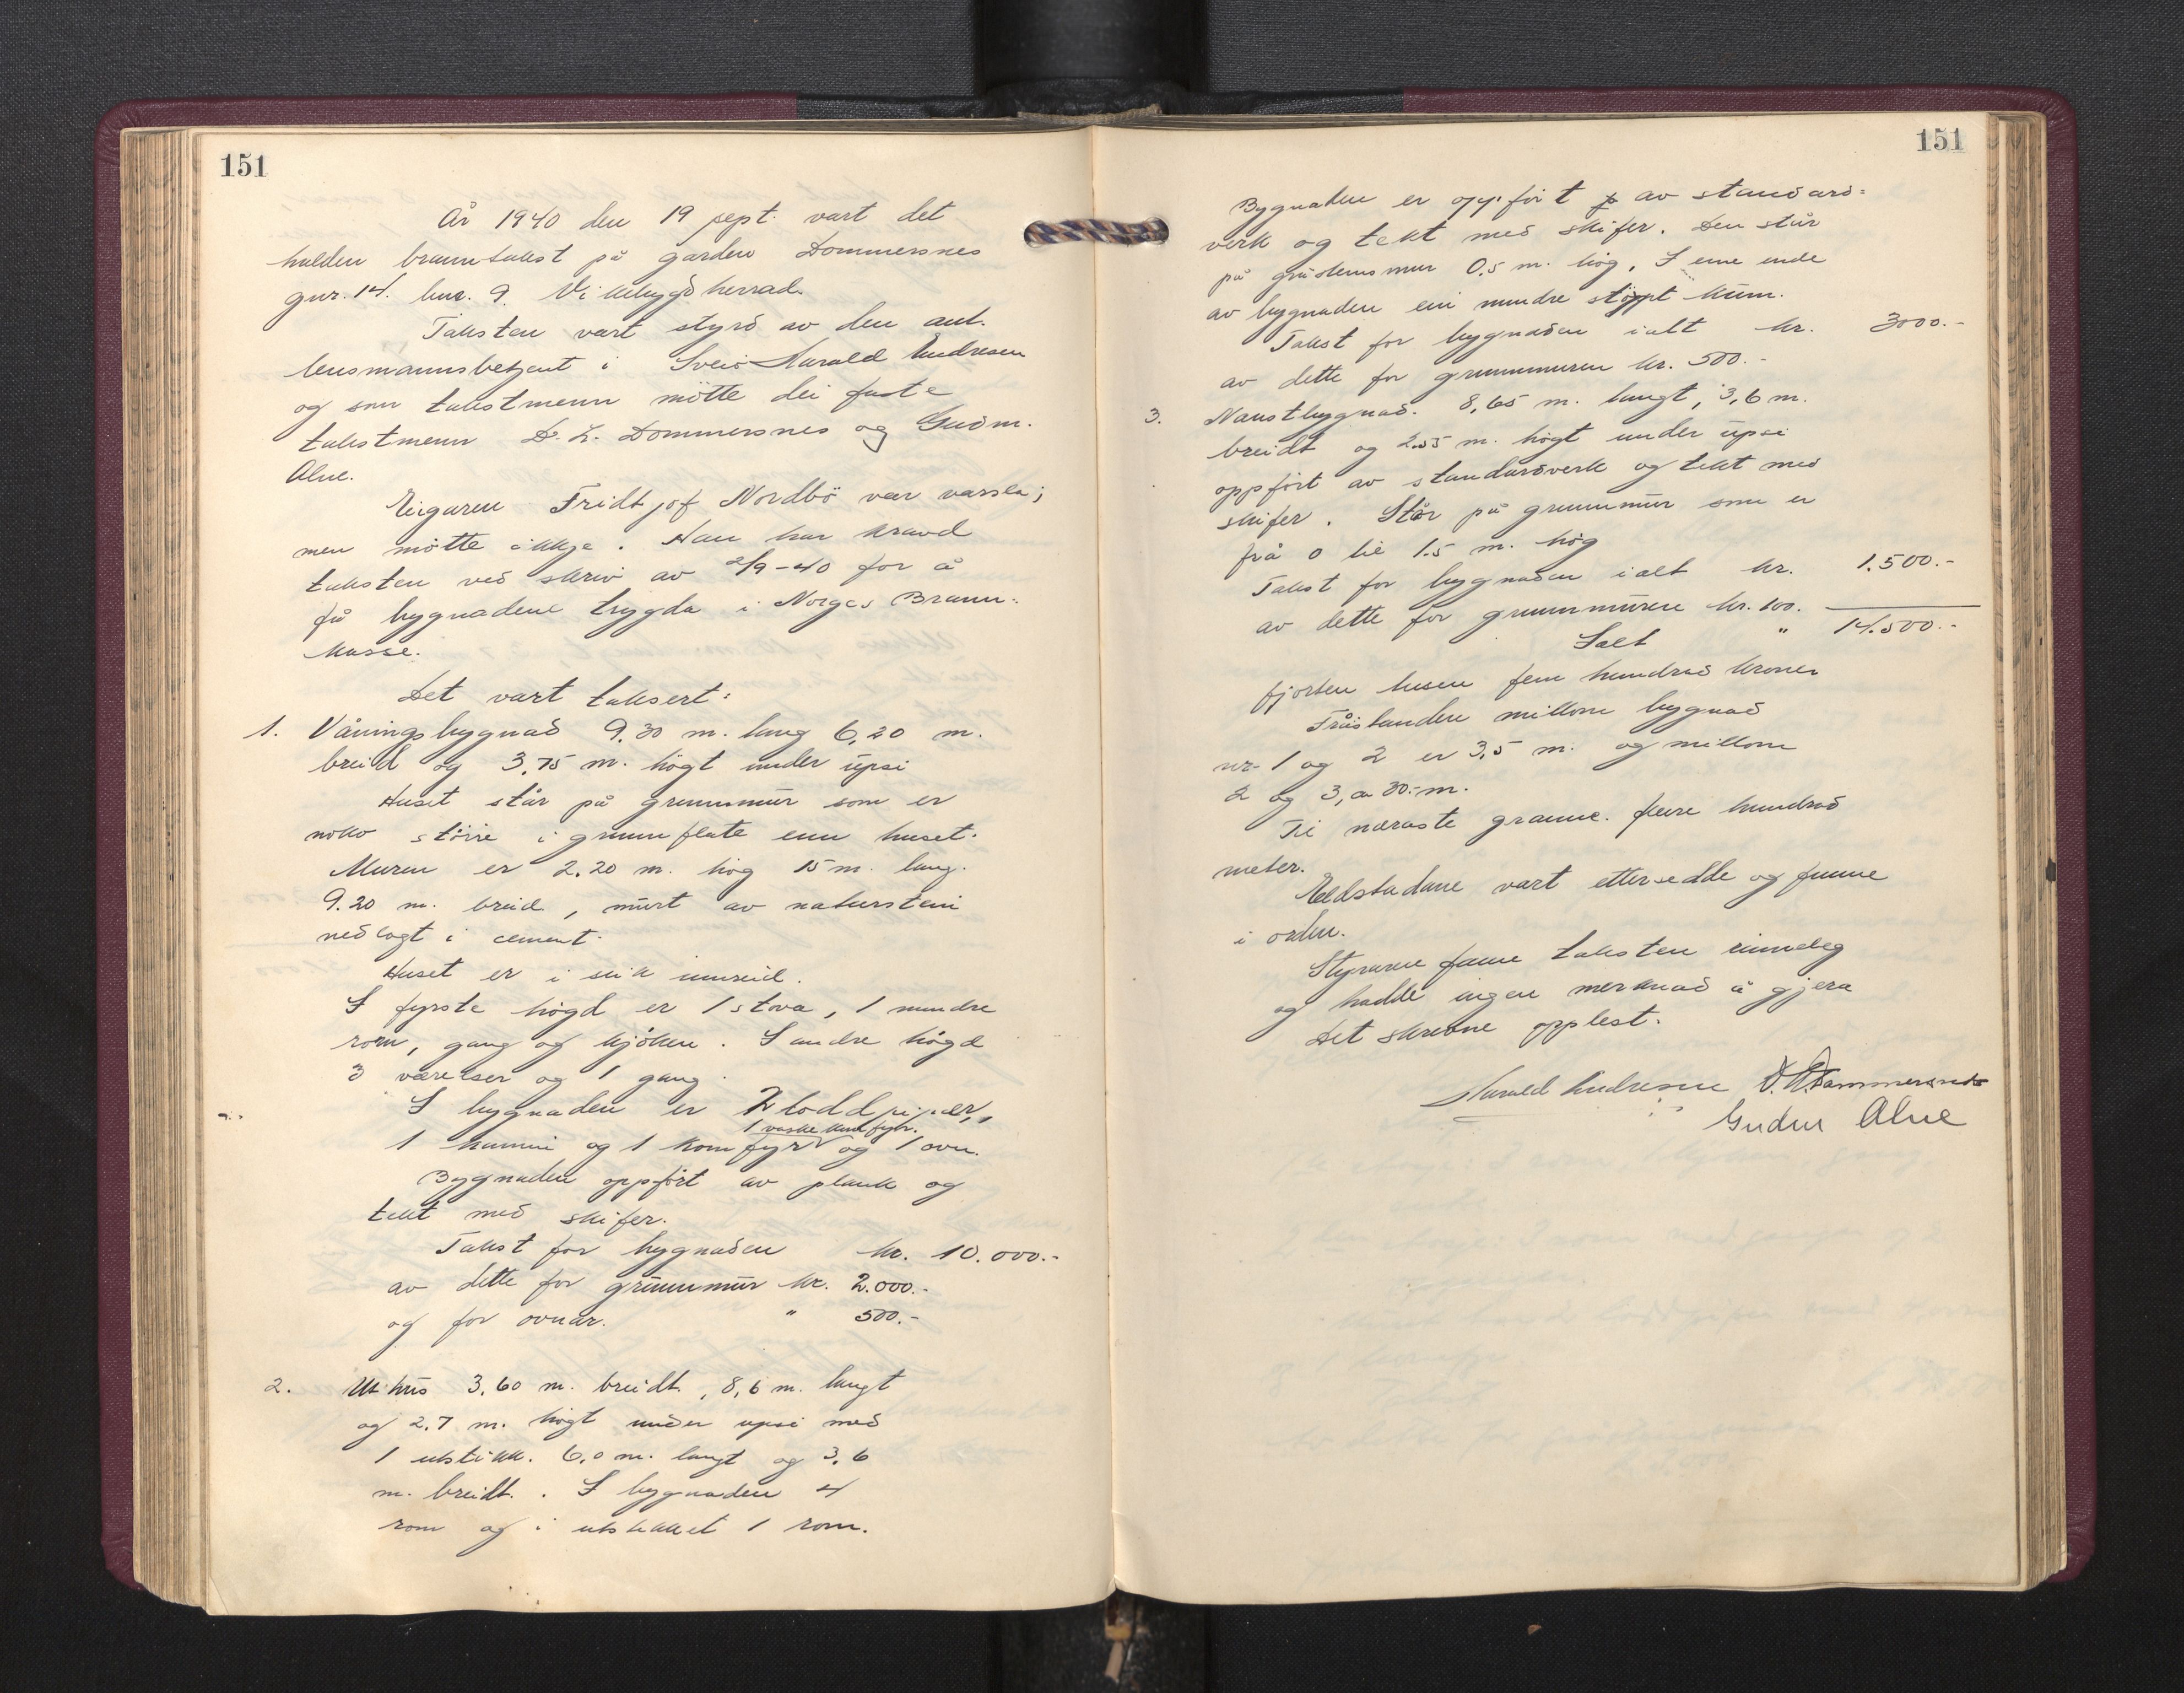 151
År 1940 den 19 sept. vart det
halden branntakst på garden Dommersnes
gnr. 14. bnr. 9. Vikebygd herrad.
Taksten vart styrd av den aut.
lensmannsbetjent i Sveio Harald Andresen
og som takstmenn mötte dei faste
takstmenn D. Z. Dommersnes og Gudm.
Alne.
Eigaren Fridtjof Nordbö var varsla;
men mötte ikkje. Han har kravd
taksten ved skriv av 2/9-40 for å
få bygnadene trygda i Norges Brann-
kasse.
Det vart taksert:
1. Våningsbygnad 9.30 m. lang 6,20 m.
breid og 3.75 m. högt under upsi
Huset står på grunnmur som er
noko större i grunnflate enn huset.
Muren er 2.20 m. hög 15 m. lang.
9.20 m. breid, murt av naturstein
nedlagt i cement.
Huset er i sin innreid.
I fyrste högd er 1 stova, 1 mindre
rom, gang og kjöken. I andre högd
3 værelser og 1 gang.
I bygnaden er 2 loddpiper,
1 vaskekumfyr.
1 kamin og 1 komfyr og 1 ovn.
Bygnaden oppfört av plank og
tekt med skifer.
Takst for bygnaden kr. 10.000.-
av dette for grunnmur kr. 2.000.-
og for ovnar. " 500.-
2. Uthus 3.60 m. breidt, 8,6 m. langt
og 2.7 m. högt under upsi med
1 utstikk. 6,0 m. langt og 3,6
m. breidt. I bygnaden 4
rom og i utstikket 1 rom.
151
Bygnaden er oppfört av standard=
verk og tekt med skifer. Den står
på gråsteinsmur 0.5 m. hög. I eine ende
av bygnaden ein mindre stöypt kum.
Takst for bygnaden ialt kr. 3000.-
av dette for grunnmuren kr. 500.-
3. Naustbygnad. 8,65 m. langt, 3,6 m.
breidt og 2.55 m. högt under upsi
oppfört av standardverk og tekt med
skifer. Står på grunnmur som er
frå 0 til 1.5 m. hög
Takst for bygnaden ialt kr. 1.500.-
av dette for grunnmuren kr. 100.
Ialt " 14.500.-
fjorten tusen fem hundrad kroner
Fråstanden millom bygnad
nr. 1 og 2 er 3,5 m. og millom
2 og 3, ca 30.- m.
Til næraste granne. fleire hundrad
meter.
Eldstadane vart ettersedde og funne
i orden.
Styraren fann taksten rimeleg
og hadde ingen merknad å gjera
Det skrevne opplest.
Harald Andresen D. Z. Dommersnes
Gudm Alne